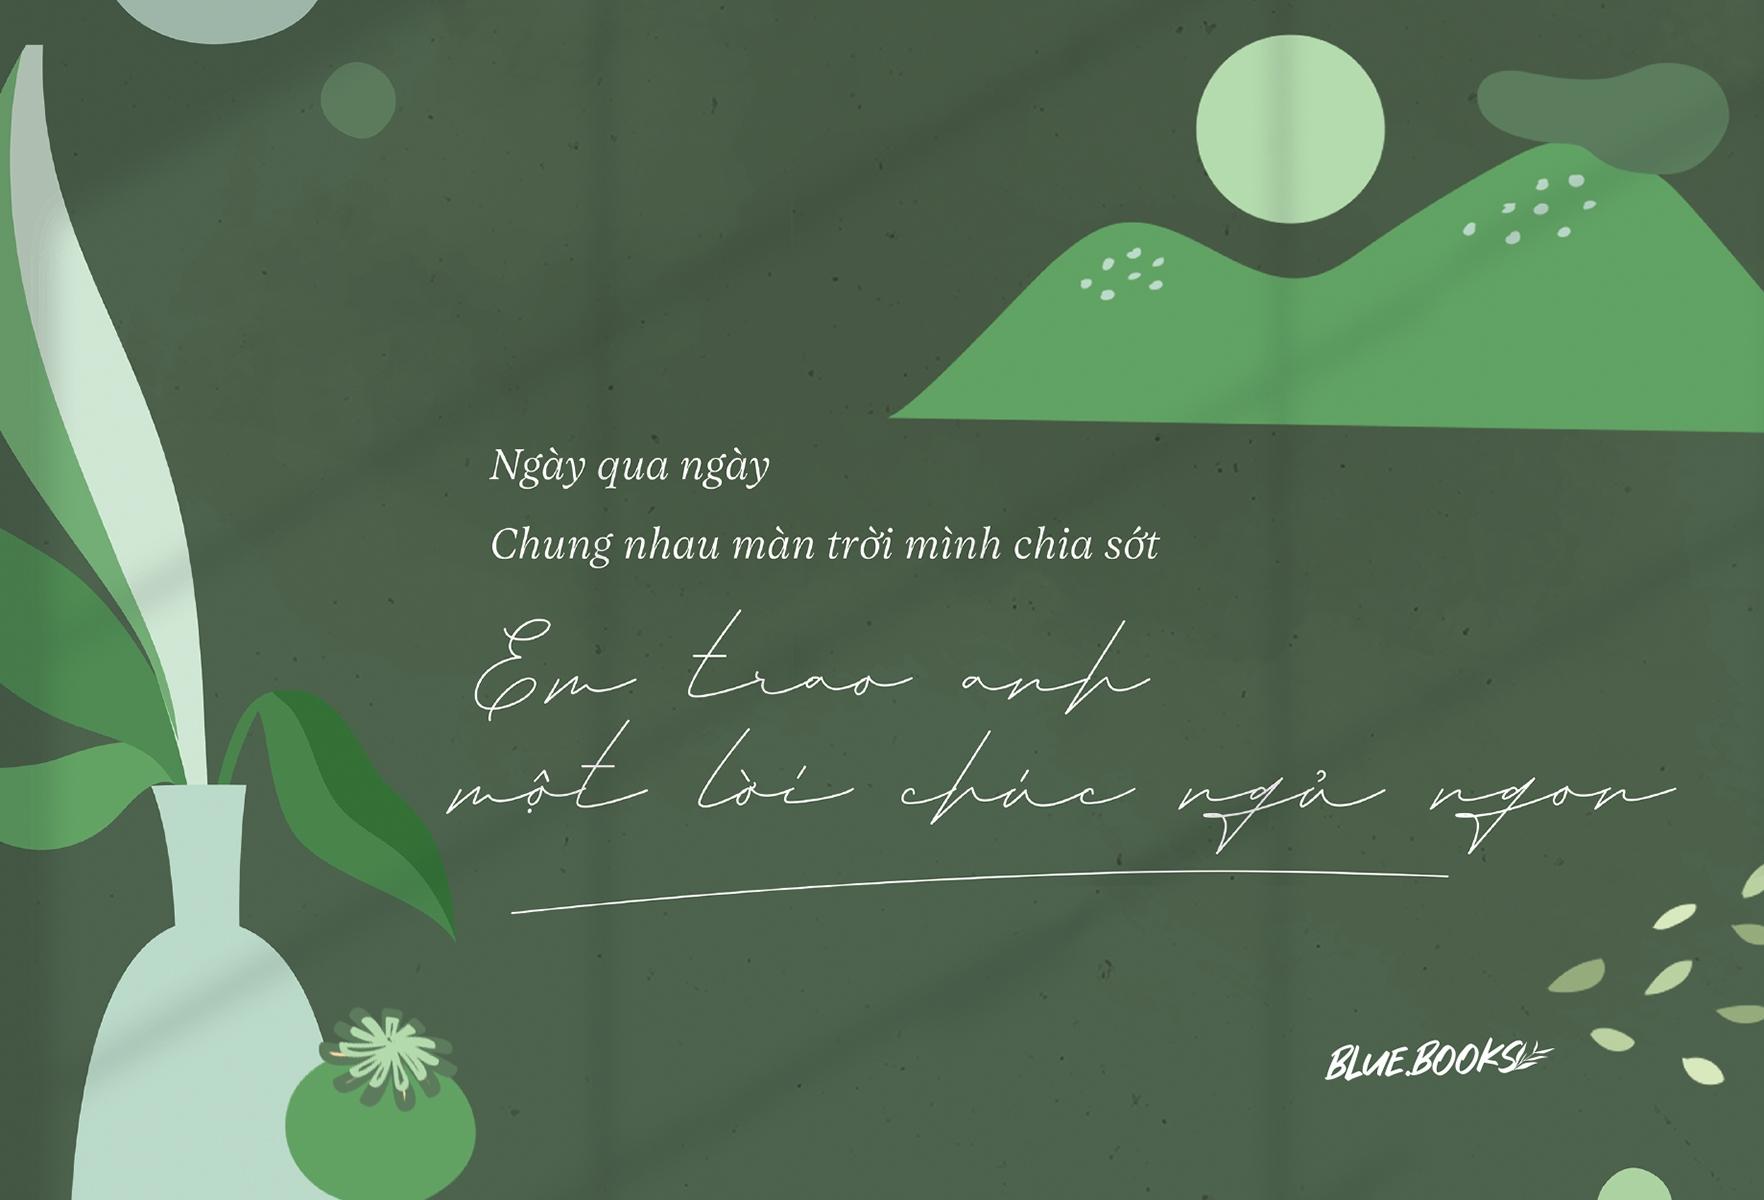 Ngày qua ngày
Chung nhau màn trời mình chia sớt
Em trao anh
một lời chúc ngủ ngon
BLUE.BOOKS